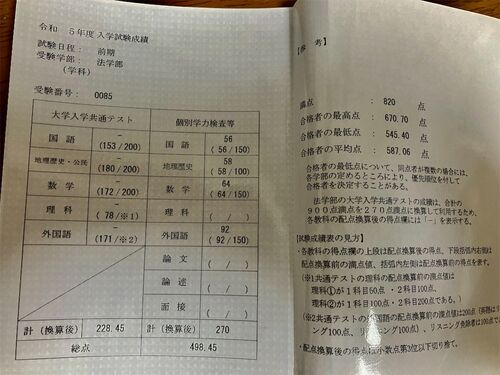 令和 5年度入学試験成績
試験日程: 前期
受験学部: 法学部
(学科)
受験番号: 0085
大学入学共通テスト 個別学力検査等
国語 − (153/200) 国語 56 (56/150)
地理歴史・公民 − (180/200) 地理歴史 58 (58/100)
数学 − (172/200) 数学 64 (64/150)
理科 − (78/※1) 理科 ( / )
外国語 − (171/※2) 外国語 92 (92/150)
論文 ( / )
論述 ( / )
面接 ( / )
計(換算後) 228.45 計(換算後) 270
総点 498.45
【参考】
満点 : 820 点
合格者の最高点 : 670.70 点
合格者の最低点 : 545.40 点
合格者の平均点 : 587.06 点
合格者の最低点について、同点者が複数の場合には、
各学部の定めるところにより、優先順位を付して
合格者を決定することがある。
法学部の大学入学共通テストの成績は、合計の
900点満点を270点満点に換算して利用するため、
各教科の配点換算後の得点欄には「−」を表示する。
【試験成績表の見方】
・各教科の得点欄の上段は配点換算後の得点、下段括弧内右側は
配点換算前の満点値、括弧内左側は配点換算前の得点を表す。
(※1共通テストの理科の配点換算前の満点値は
理科①が1科目50点・2科目100点、
理科②が1科目100点・2科目200点である。)
(※2共通テストの外国語の配点換算前の満点値は200点(英語はリ
ング100点、リスニング100点)、リスニング免除者は100点で
・配点換算後の得点は小数点第3位以下切り捨て。